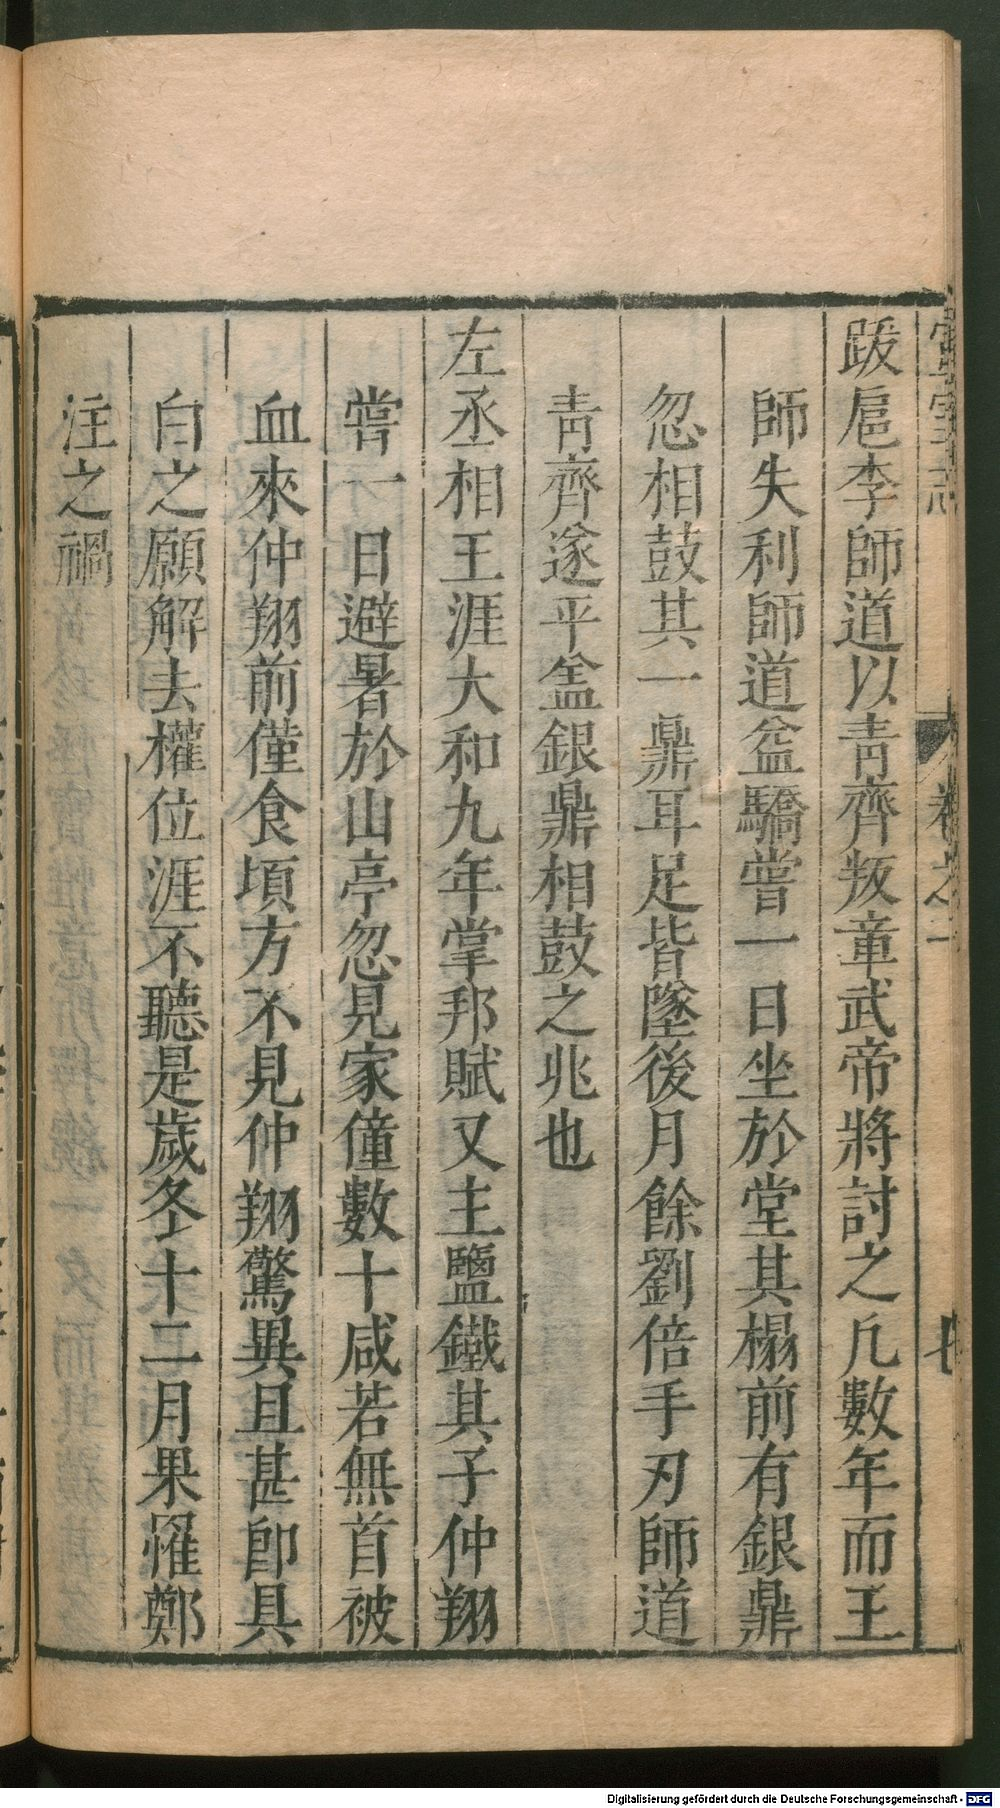 跋扈李師道以青齊叛章武帝將討之凢數年而王
師失利師道益驕嘗一日坐於堂其榻前有銀鼎
忽相鼓其一鼎耳足皆墜後月餘劉倍手刃師道
青齊遂平盖銀鼎相鼓之兆也
左丞相王涯大和九年掌邦賦又主鹽鐵其子仲翔
嘗一日避暑於山亭忽見家僮數十咸若無首被
血來仲翔前僅食頃方不見仲翔驚異且甚卽具
白之願解去權位涯不聽是歲冬十二月果罹鄭
注之禍
卷之二
Digitalisierung gefördert durch die Deutsche Forschungsgemeinschaft - DFG